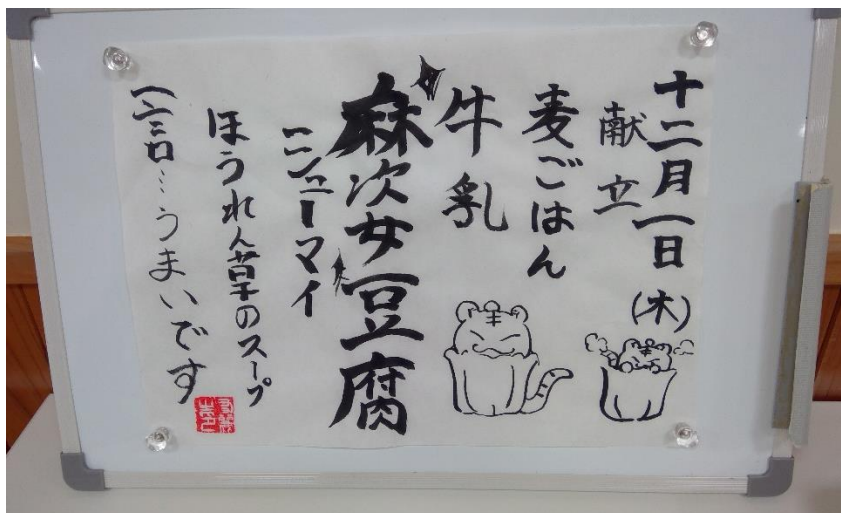 十二月一日(木)
献立
麦ごはん
牛乳
麻次女豆腐
ニシューマイ
ほうれん草のスープ
一言…うまいです